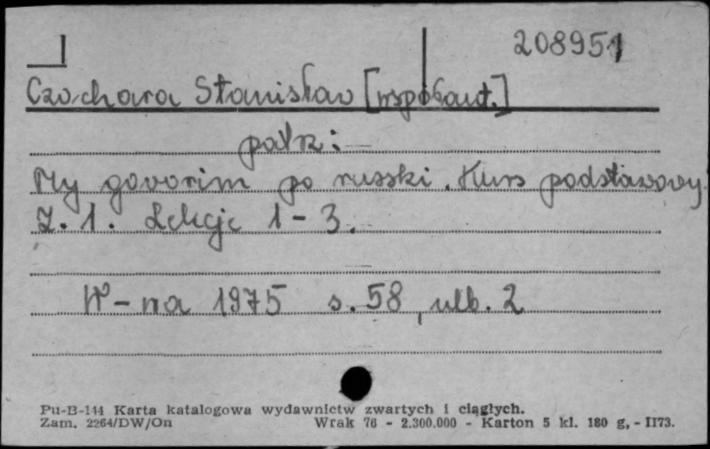 208951
Czochara Stanisław [współaut.]
patrz:
My govorim po russki. Kurs podstawowy.
Z. 1. Lekcje 1-3.
W-wa 1975 s. 58, nlb. 2
Pu-B-144 Karta katalogowa wydawnictw zwartych i ciągłych.
Zam. 2264/DW/On Wrak 76 - 2.300.000 - Karton 5 kl. 180 g, - II73.